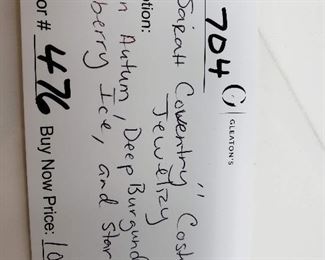 704 GLEATON'S
Sarah Coventry" Cost
Jewelry
tion:
n Autum, Deep Burgund
berry Ice, and Star
or # 476 Buy Now Price: 10